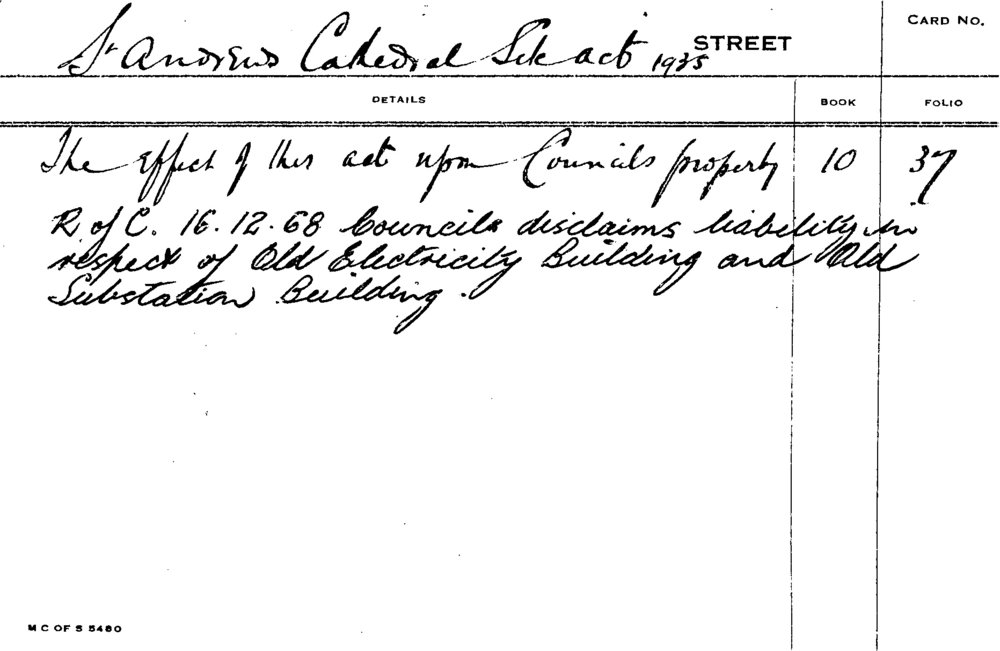 CARD No.
St Andrews Cathedral Site act 1935 STREET
DETAILS BOOK FOLIO
The effect of this act upon Councils property 10 37
R. of C. 16.12.68 Councils disclaims liability in
respect of Old Electricity Building and Old
Substation Building.
M C OF S 5480